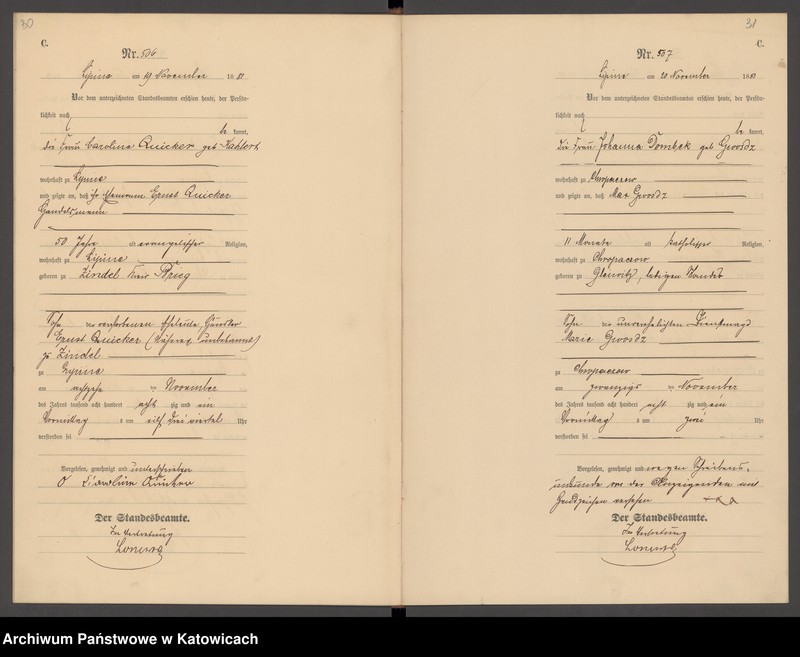 30
C.
Nr. 506
Lipine am 19 November 1881
Vor dem unterzeichneten Standesbeamten erschien heute, der Persön-
lichkeit nach
be kannt,
die Frau Carolina Quicker geb. Kahlert
wohnhaft zu Lipine
und zeigte an, daß ihr Ehemann Ernst Quicker
Handelsmann
50 Jahre alt evangelischer Religion,
wohnhaft zu Lipine
geboren zu Zindel Kreis Brieg
Sohn der verstorbenen Eheleute
Ernst Quicker ( unbekannt)
zu Zindel
zu Lipine
am achtzehn ten November
des Jahres tausend acht hundert acht zig und ein
Vormittag s um elf drei viertel Uhr
verstorben sei
Vorgelesen, genehmigt und unterschrieben
Der Standesbeamte.
In Vertretung
31
C.
Nr. 507
Lipine am 20 November 1881
Vor dem unterzeichneten Standesbeamten erschien heute, der Persön-
lichkeit nach
be kannt,
die Frau Johanna Dombek geb Gwosdz
wohnhaft zu Chropaczow
und zeigte an, daß Max Gwosdz
11 Monate alt katholischer Religion,
wohnhaft zu Chropaczow
geboren zu Gleiwitz, ledigen Standes
Sohn der unverehelichten Dienstmagd
Marie Gwosdz
zu Chropaczow
am zwanzigs ten November
des Jahres tausend acht hundert acht zig und ein
Vormittag s um zwei Uhr
verstorben sei
Vorgelesen, genehmigt und wegen Schreibens-
unkunde von der Anzeigenden mit
Handzeichen versehen +++
Der Standesbeamte.
In Vertretung
Archiwum Państwowe w Katowicach